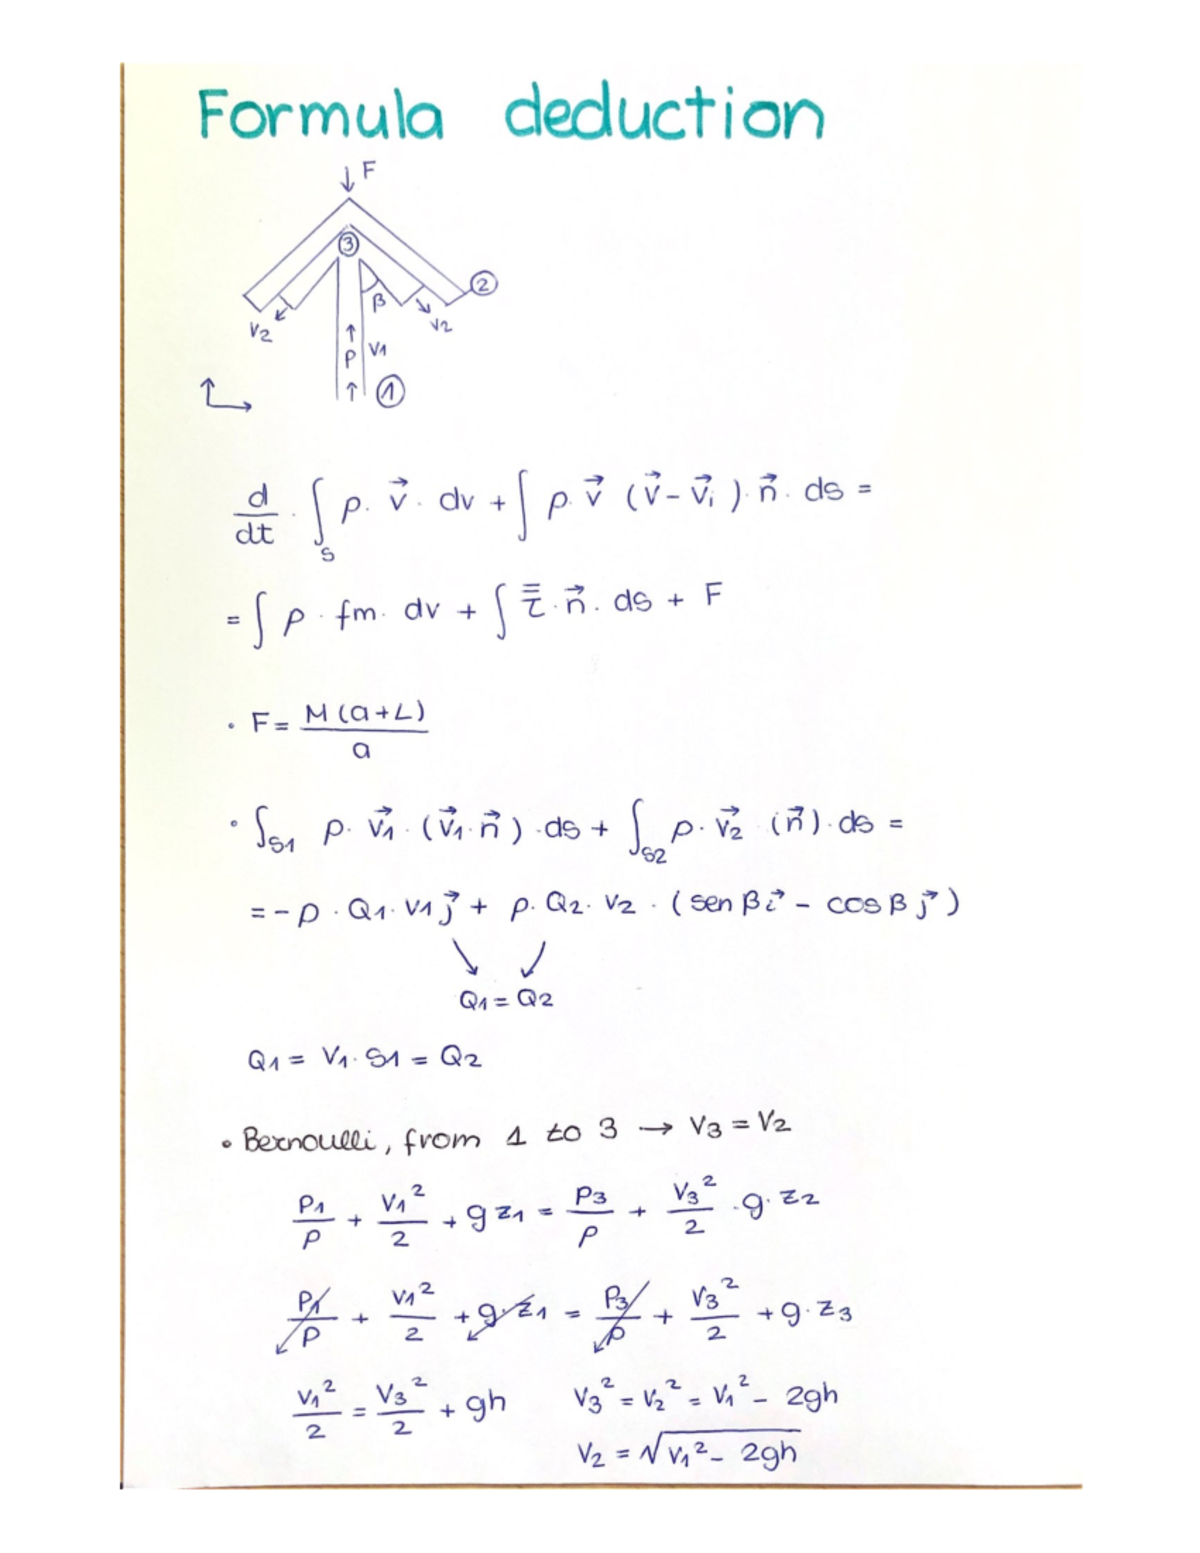 Formula deduction
↓ F
③
②
β
V2
V2
P V1
①
d/dt · ∫s ρ · v⃗ · dv + ∫ ρ · v⃗ (v⃗ - v⃗i) · n⃗ · ds =
= ∫ ρ · fm · dv + ∫ τ̿ · n⃗ · ds + F
· F = M(a+L)/a
· ∫S1 ρ · v⃗1 · (v⃗1 · n⃗) · ds + ∫S2 ρ · v⃗2 (n⃗) · ds =
= -ρ · Q1 · V1 j⃗ + ρ · Q2 · V2 · (sen β i⃗ - cos β j⃗)
Q1 = Q2
Q1 = V1 · S1 = Q2
• Bernoulli, from 1 to 3 → V3 = V2
P1/ρ + V1²/2 + g z1 = P3/ρ + V3²/2 · g · z2
P1/ρ + V1²/2 + g · z1 = P3/ρ + V3²/2 + g · z3
V1²/2 = V3²/2 + gh V3² = V2² = V1² - 2gh
V2 = √(V1² - 2gh)